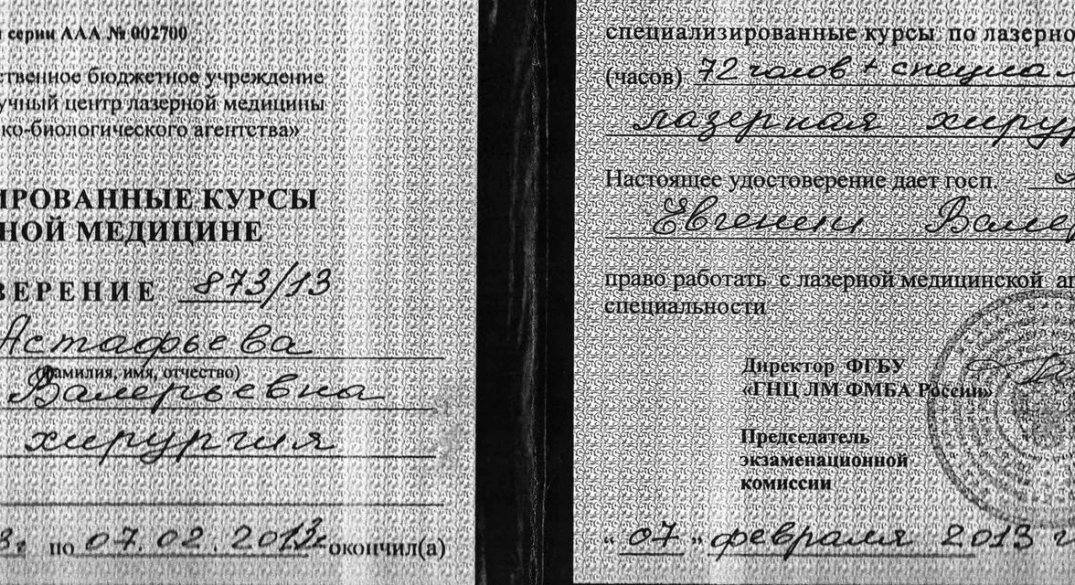 серии ААА № 002700
ственное бюджетное учреждение
учный центр лазерной медицины
ко-биологического агентства»
ИРОВАННЫЕ КУРСЫ
НОЙ МЕДИЦИНЕ
ВЕРЕНИЕ 873/13
Астафьева
(фамилия, имя, отчество)
Валерьевна
хирургия
3г по 07.02.2013г окончил(а)
специализированные курсы по лазерно
(часов) 72 часов + специал
лазерная хирур
Настоящее удостоверение дает госп.
Евгении Валер
право работать с лазерной медицинской ап
специальности
Директор ФГБУ
«ГНЦ ЛМ ФМБА России»
Председатель
экзаменационной
комиссии
“ 07 ” февраля 2013 г